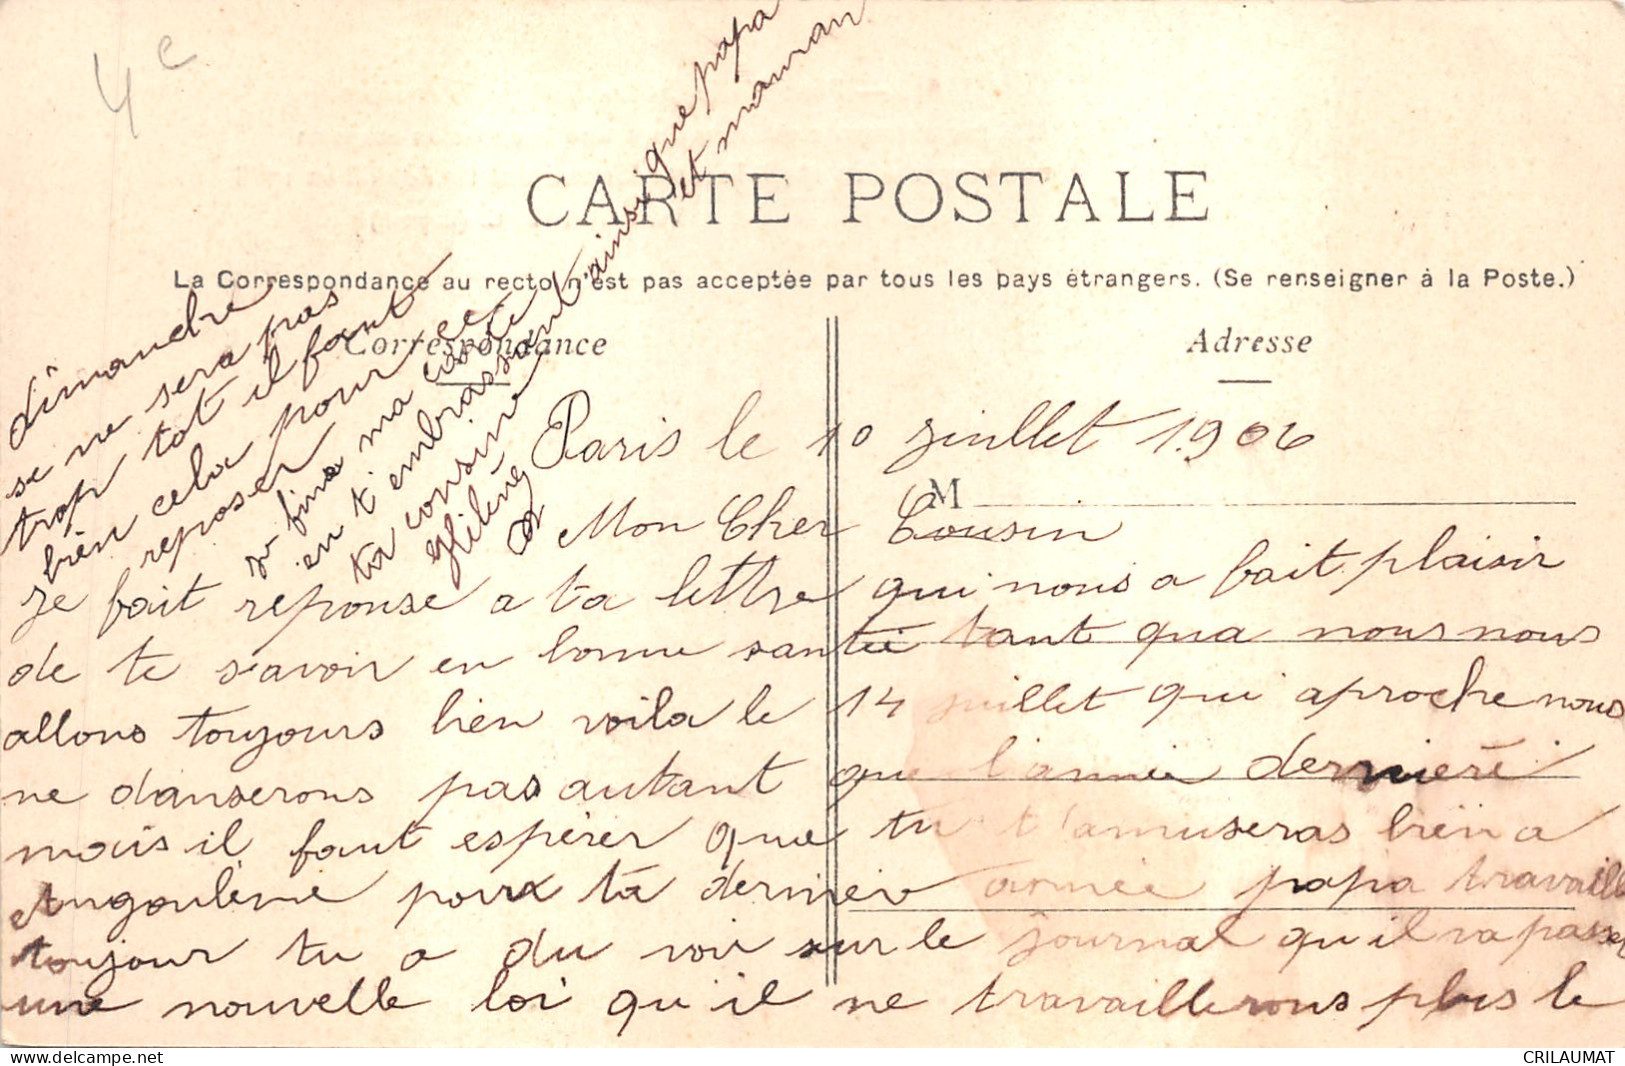 4e
CARTE POSTALE
La Correspondance au recto n'est pas acceptée par tous les pays étrangers. (Se renseigner à la Poste.)
Correspondance
Adresse
M
Paris le 10 juillet 1906
Mon Cher Cousin
Je fait reponse a ta lettre qui nous a fait plaisir
de te s'avoir en bonne santée tant qua nous nous
allons toujours bien voila le 14 juillet qui aproche nous
ne danserons pas autant que l'année dernière
mais il faut espérer que tu t'amuseras bien a
Angoulème pour ta dernier année papa travaille
toujour tu a du voir sur le journal qu'il va passer
une nouvelle loi qu'il ne travaillerons plus le
dimanche
se ne sera pas
trop tot il faut
bien cela pour ce
reposer
finis ma carte
en t'embrassant ainsi que papa
et maman
ta cousine